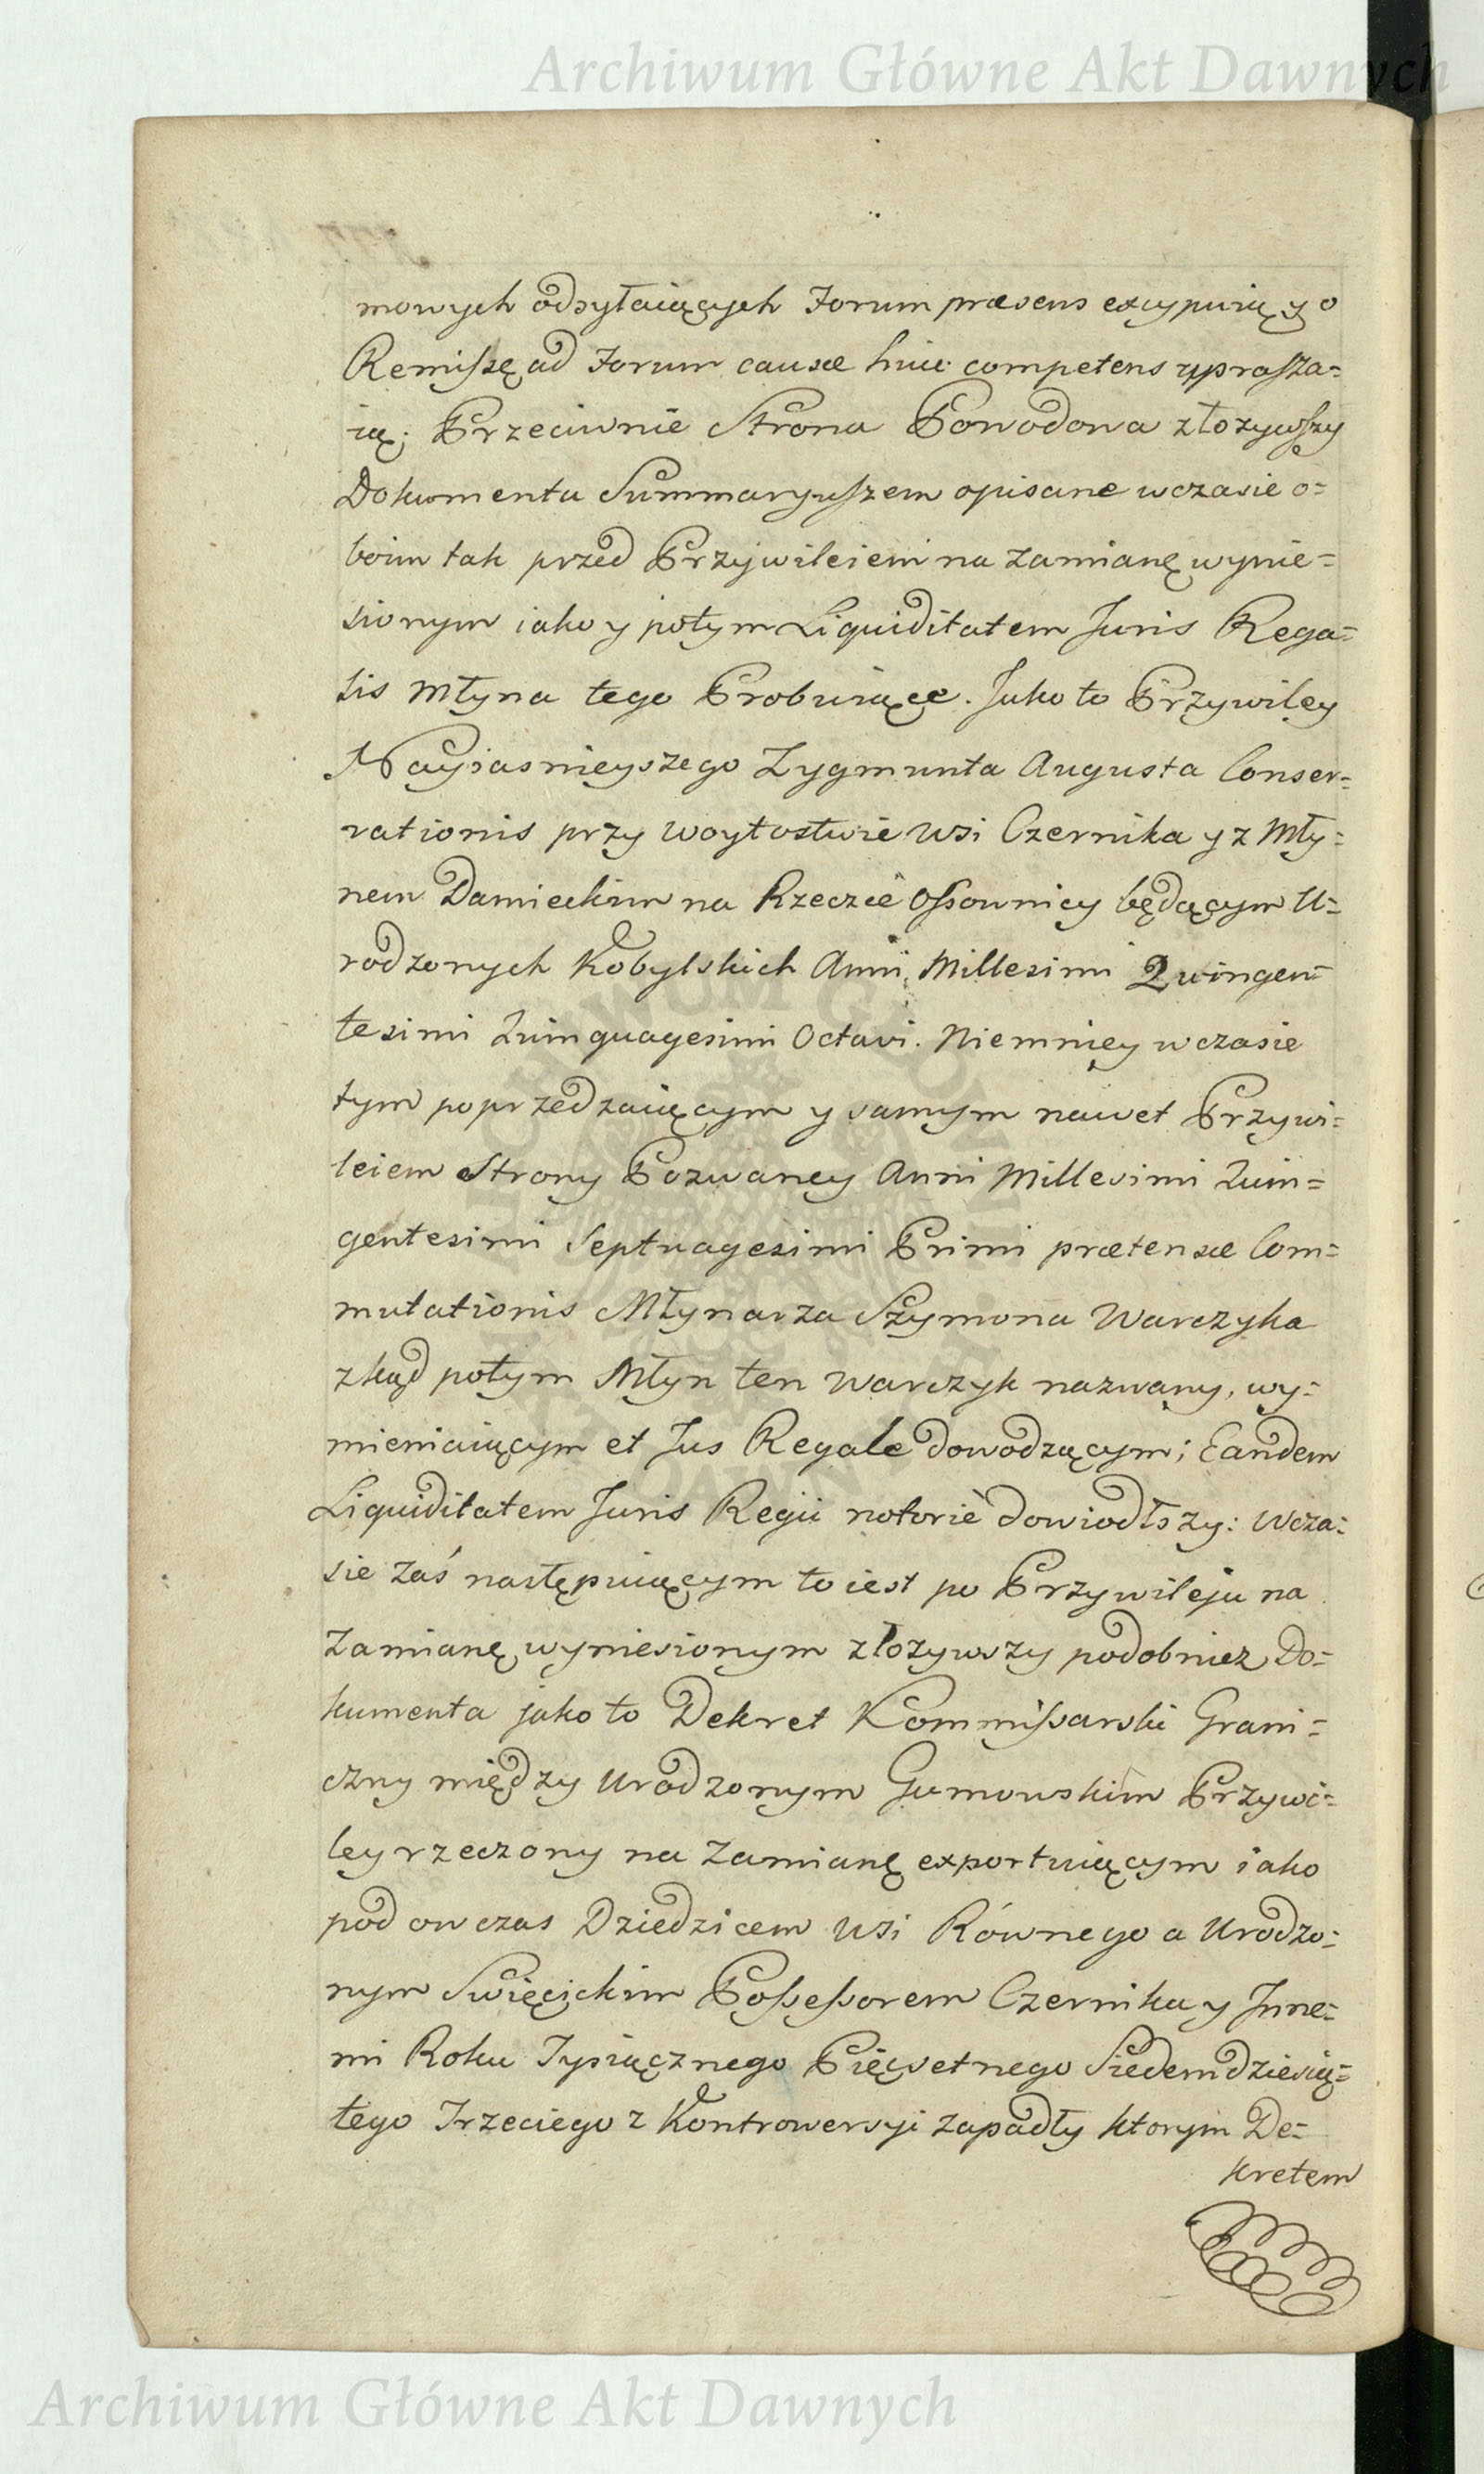 Archiwum Główne Akt Dawnych
mowych odsyłaiących Forum præsens excypuią y o
Remissę ad Forum causæ huic competens uprasza=
ią; Przeciwnie Strona Powodowa złozywszy
Dokumenta Summaryuszem opisane wczasie o=
boim tak przed Przywileiem na zamianę wynie=
sionym iako y potym Liquiditatem Juris Rega=
lis Młyna tego Probuiące. Jako to Przywiley
Nayiasnieyszego Zygmunta Augusta Conser=
vationis przy woytostwie wsi Czernika y z Mły=
nem Damieckim na Rzeczce Ossownicy będącym U=
rodzonych Kobylskich Anni Millesimi Quingen=
tesimi Quinquagesimi Octavi. Niemniey wczasie
tym poprzedzaiącym y samym nawet Przywi=
leiem Strony Pozwaney Anni Millesimi Quin=
gentesimi Septuagesimi Primi prætensæ Com=
mutationis Młynarza Szymona Warczyka
zkąd potym Młyn ten Warczyk nazwany, wy=
mieniaiącym et Jus Regale dowodzącym; Eandem
Liquiditatem Juris Regii notorie dowiodłszy: Wcza=
sie zaś następuiącym to iest po Przywileju na
Zamianę wyniesionym złozywszy podobniez Do=
kumenta jako to Dekret Kommissarski Grani=
czny między Urodzonym Gumowskim Przywi=
ley rzeczony na Zamianę exportuiącym iako
pod owczas Dziedzicem Wsi Równego a Urodzo=
nym Swięcickim Possessorem Czernika y Inne=
mi Roku Tysiącznego Pięcsetnego Siedemdziesią=
tego Trzeciego z Kontrowersyi zapadły ktorym De=
kretem
Archiwum Główne Akt Dawnych